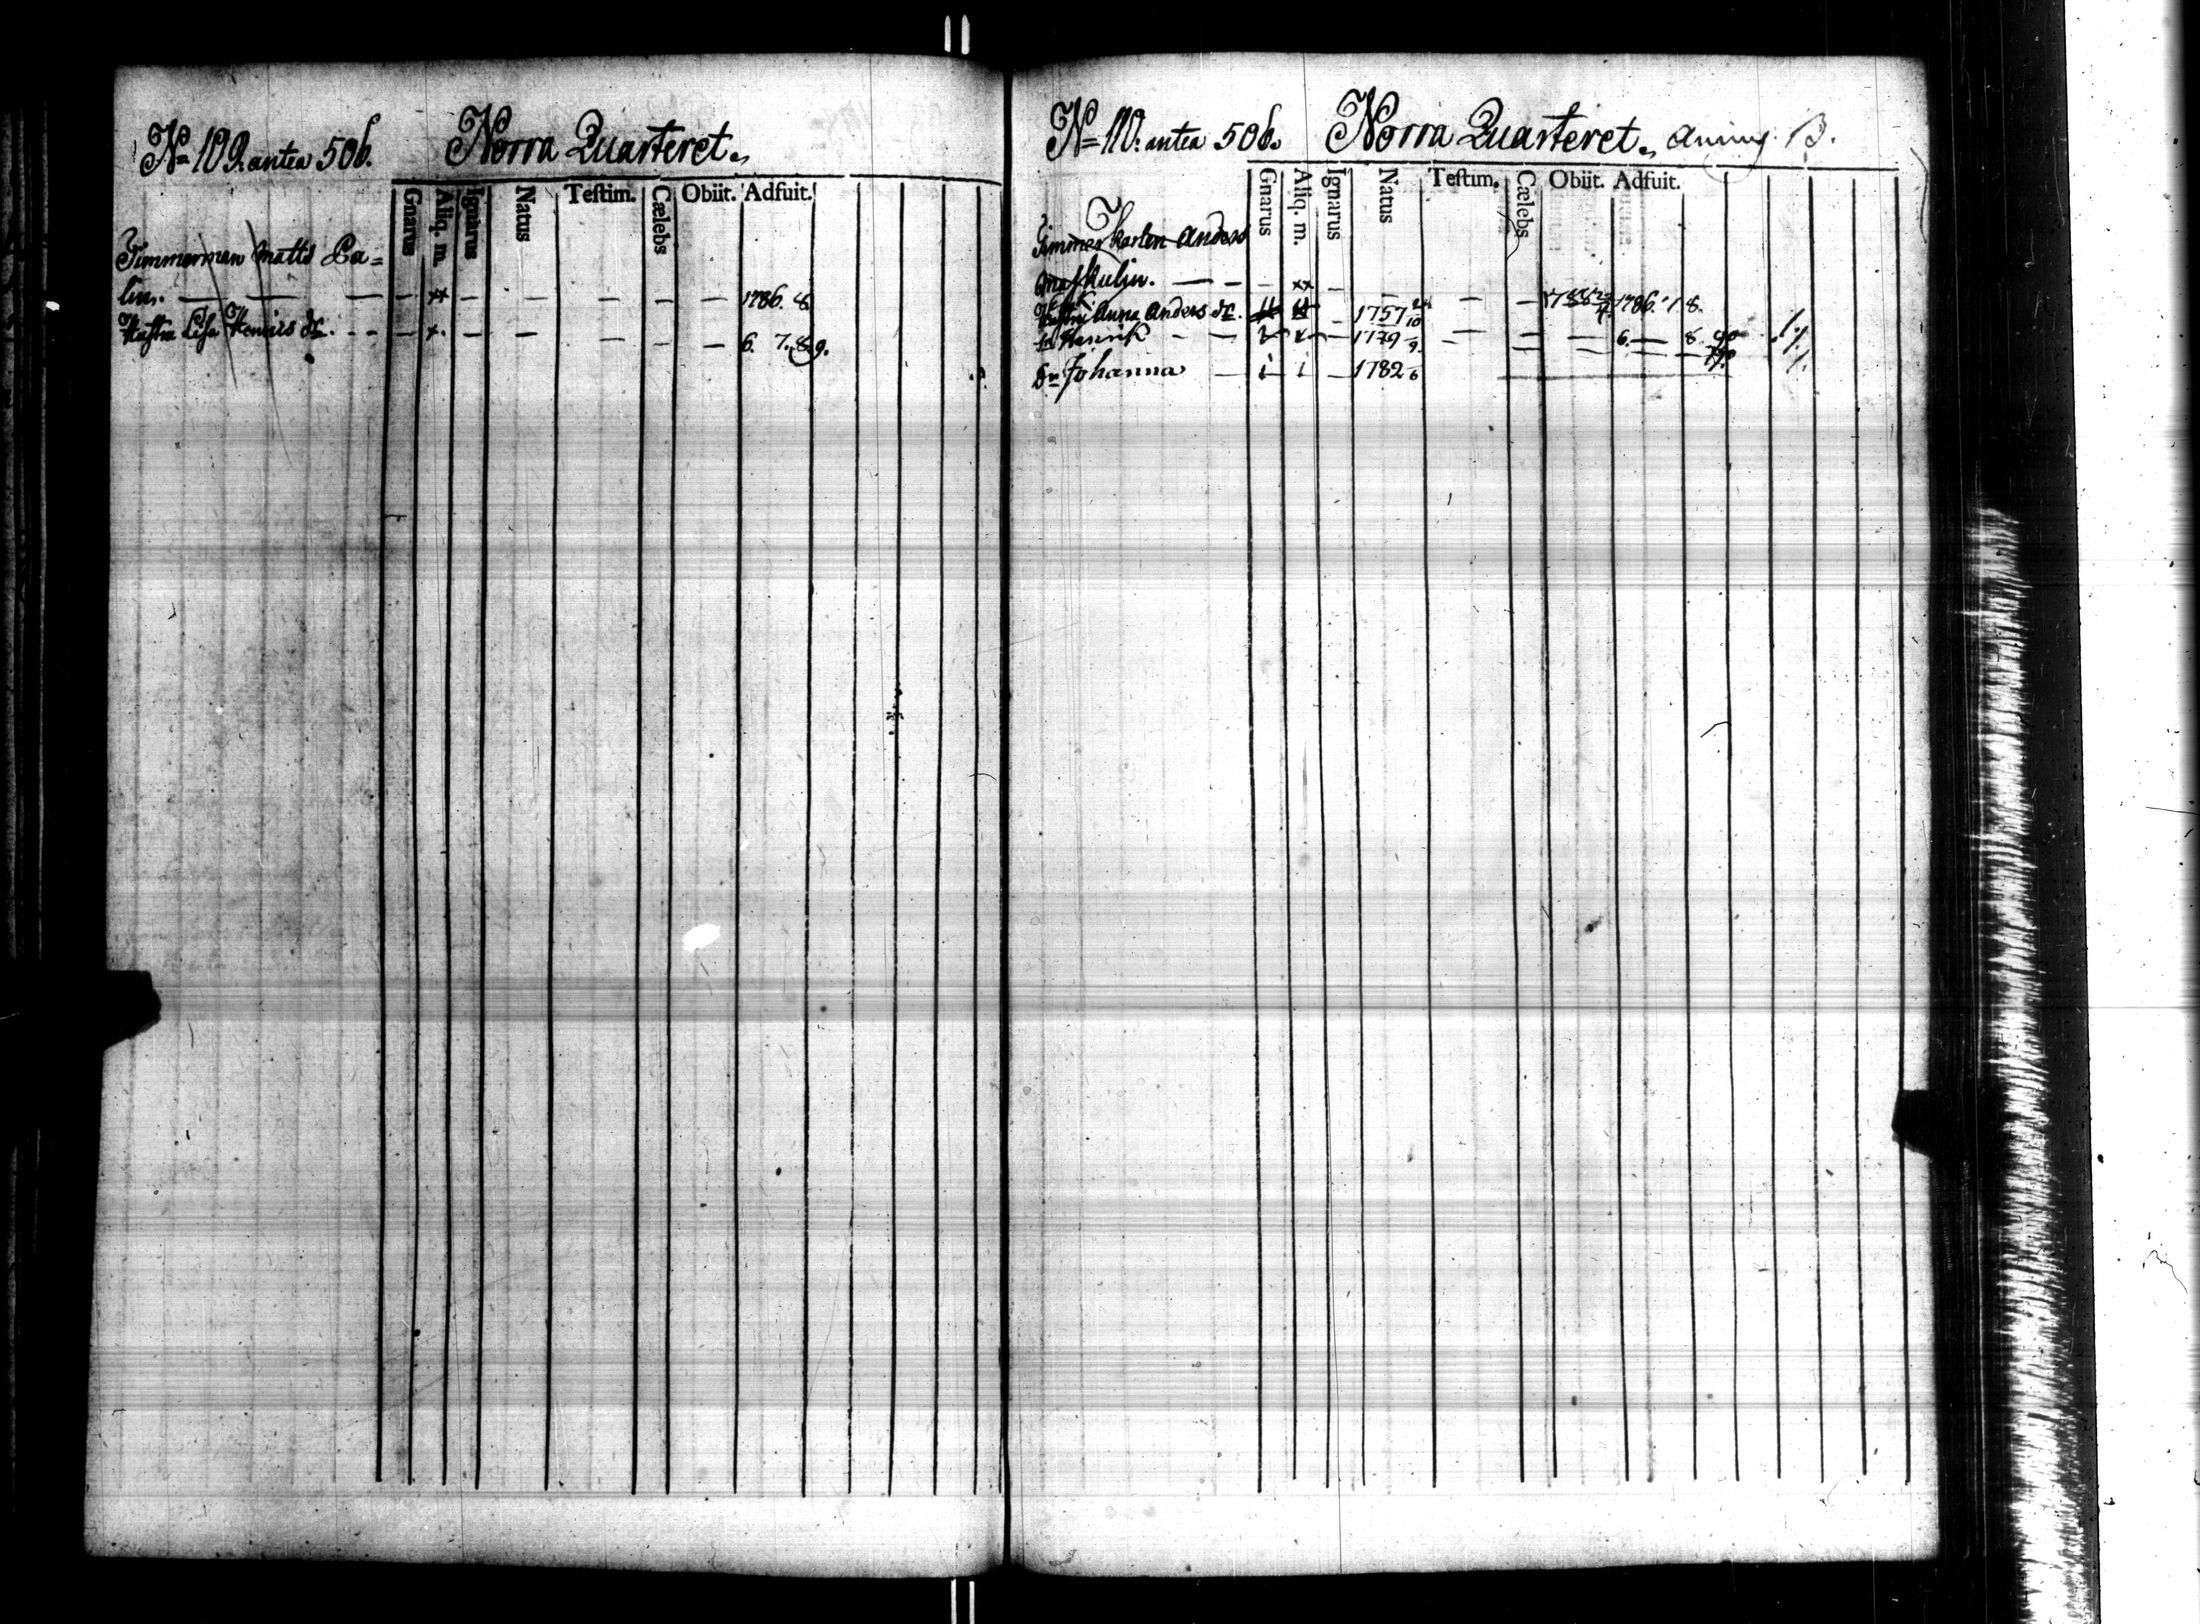 N= 109. antea 506.
Norra Quarteret.
Gnarus Aliq. m. Ignarus Natus Testim. Cælebs Obiit. Adfuit.
Timmerman Matts Ca=
lin. — — — — xx — — — — — 1786. 8.
Hustru Lisa Henrics dr. - - — x. — — — — — 6. 7. 8. 9.
N= 110. antea 506. Norra Quarteret. B.
Gnarus Aliq. m. Ignarus Natus Testim. Cælebs Obiit. Adfuit.
Timmerkarlen Anders
Maskulin. — - - - xx — — — — 1786. 8.
Hustru Anna Anders dr. 1757 24/10
Sn Henrik - - 1779 9. — — — 6. — 8. 90
Dr Johanna — 1782 6